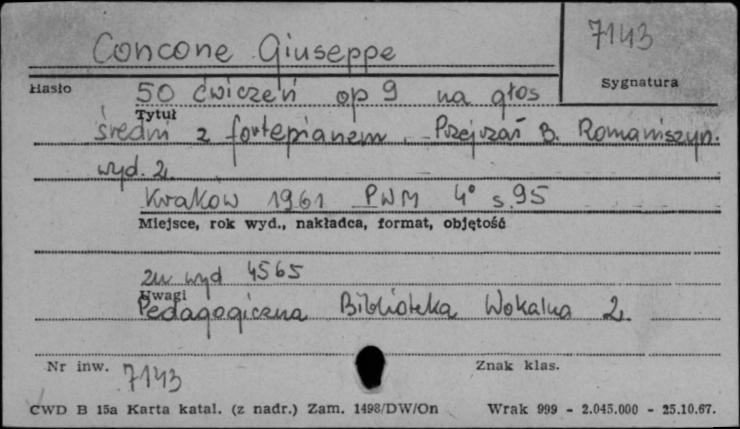 Concone Giuseppe
7143
Hasło
Sygnatura
50 ćwiczeń op 9 na głos
Tytuł
średni z fortepianem. Przejrzał B. Romaniszyn.
wyd. 2.
Kraków 1961 PWM 4° s. 95
Miejsce, rok wyd., nakładca, format, objętość
zw wyd 4565
Uwagi
Pedagogiczna Biblioteka Wokalna 2.
Nr inw. 7143
Znak klas.
CWD B 15a Karta katal. (z nadr.) Zam. 1498/DW/On Wrak 999 - 2.045.000 - 25.10.67.